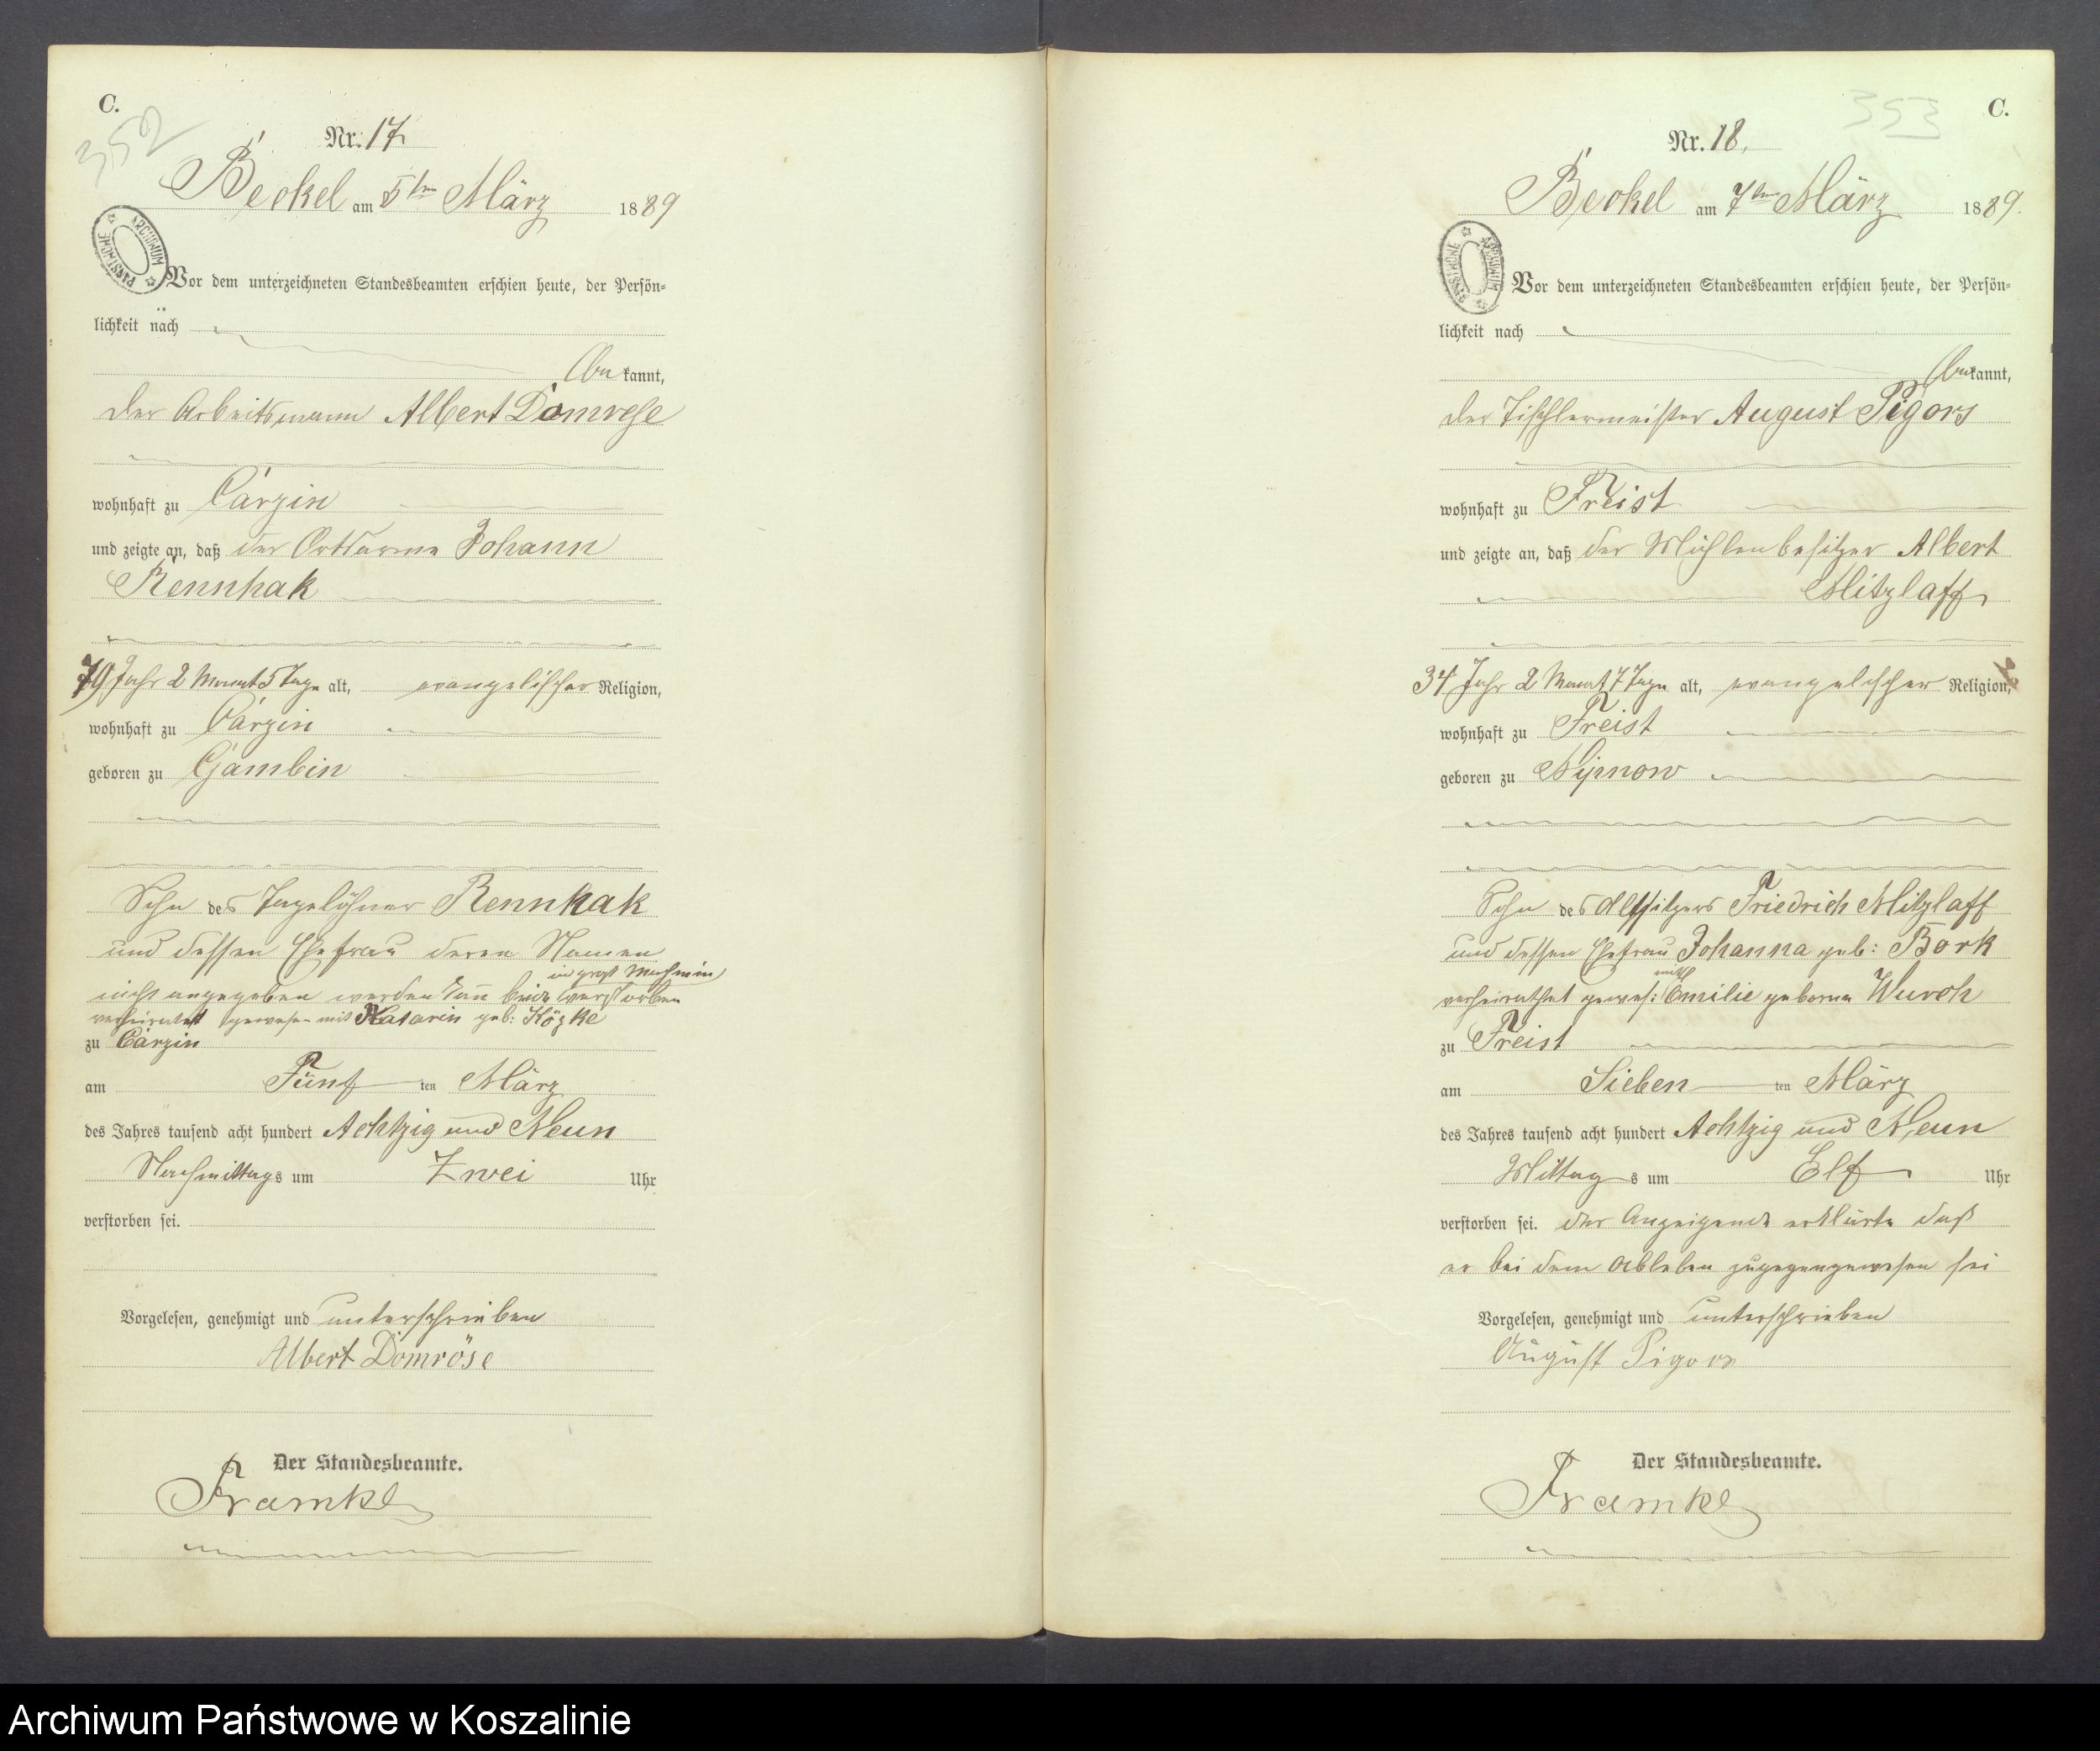 C.
352
Nr. 17
Beckel am 5ten März 1889
ARCHIWUM PAŃSTWOWE
Vor dem unterzeichneten Standesbeamten erschien heute, der Persön-
lichkeit nach
be kannt,
der Arbeitsmann Albert Domrese
wohnhaft zu Carzin
und zeigte an, daß der Ortsarme Johann
Rennhak
79 Jahr 2 Monat 5 Tage alt, evangelischer Religion,
wohnhaft zu Carzin
geboren zu Gambin
Sohn des Tagelöhner Rennhak
und dessen Ehefrau deren Namen
nicht angegeben werden kann beide verstorben
in groß Machmin
verheirathet gewesen mit Katarin geb: Közke
zu Carzin
am Fünf ten März
des Jahres tausend acht hundert Achtzig und Neun
Nachmittags um Zwei Uhr
verstorben sei.
Vorgelesen, genehmigt und unterschrieben
Albert Domröse
Der Standesbeamte.
Framke
353
C.
Nr. 18.
Beckel am 7ten März 1889.
ARCHIWUM PAŃSTWOWE
Vor dem unterzeichneten Standesbeamten erschien heute, der Persön-
lichkeit nach
be kannt,
der Tischlermeister August Pigors
wohnhaft zu Freist
und zeigte an, daß der Mühlenbesitzer Albert
Mitzlaff
34 Jahr 2 Monat 7 Tage alt, evangelischer Religion,
wohnhaft zu Freist
geboren zu
Sohn des Altsitzers Friedrich Mitzlaff
und dessen Ehefrau Johanna geb: Bork
verheirathet gewes: mit Emilie geborne Wurch
zu Freist
am Sieben ten März
des Jahres tausend acht hundert Achtzig und Neun
Mittag s um Elf Uhr
verstorben sei. der Anzeigende erklärte daß
er bei dem Ableben zugegengewesen sei
Vorgelesen, genehmigt und unterschrieben
August Pigors
Der Standesbeamte.
Framke
Archiwum Państwowe w Koszalinie